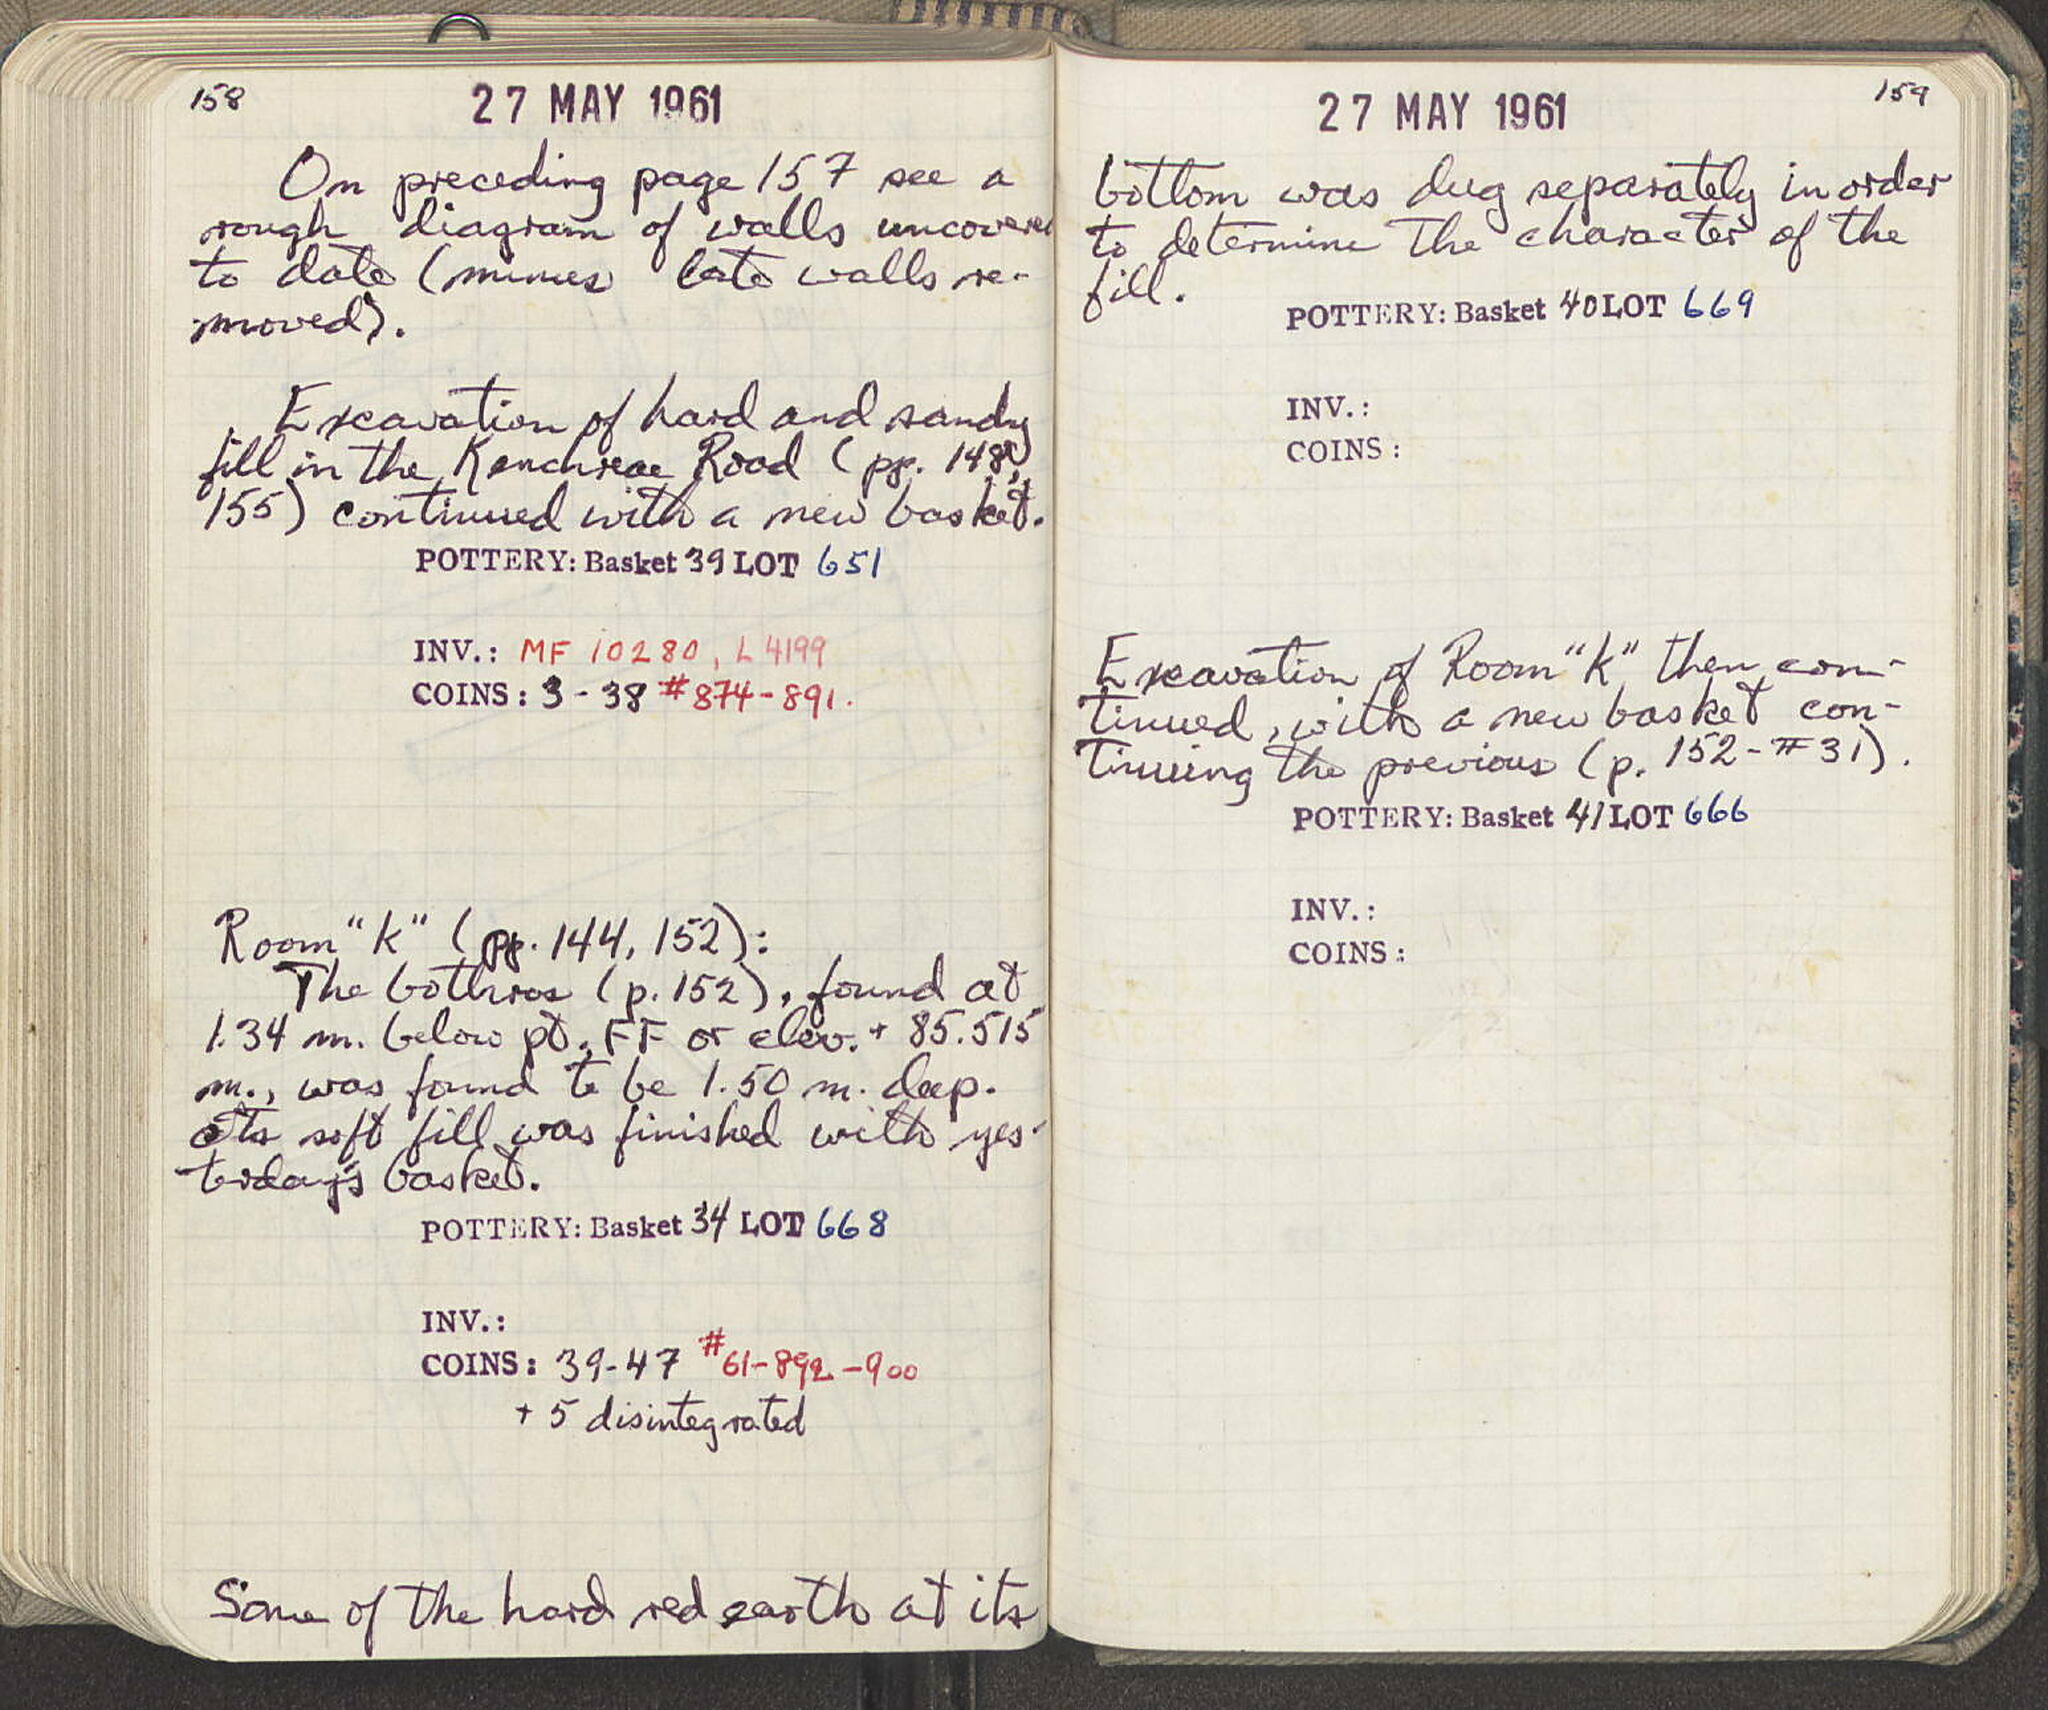 158
27 MAY 1961
On preceding page 157 see a
rough diagram of walls uncovered
to date (minus late walls re-
moved).
Excavation of hard and sandy
fill in the Kenchreae Road (pp. 148,
155) continued with a new basket.
POTTERY: Basket 39 LOT 651
INV.: MF 10280, L 4199
COINS: 3 - 38 #874-891.
Room "k" (pp. 144, 152):
The bothros (p. 152), found at
1.34 m. below pt. FF or elev. + 85.515
m., was found to be 1.50 m. deep.
Its soft fill was finished with yes-
terday's basket.
POTTERY: Basket 34 LOT 668
INV.:
COINS: 39-47 #61-892-900
+ 5 disintegrated
Some of the hard red earth at its
159
27 MAY 1961
bottom was dug separately in order
to determine the character of the
fill.
POTTERY: Basket 40 LOT 669
INV.:
COINS:
Excavation of Room "k" then con-
tinued, with a new basket con-
tinuing the previous (p. 152-#31).
POTTERY: Basket 41 LOT 666
INV.:
COINS: